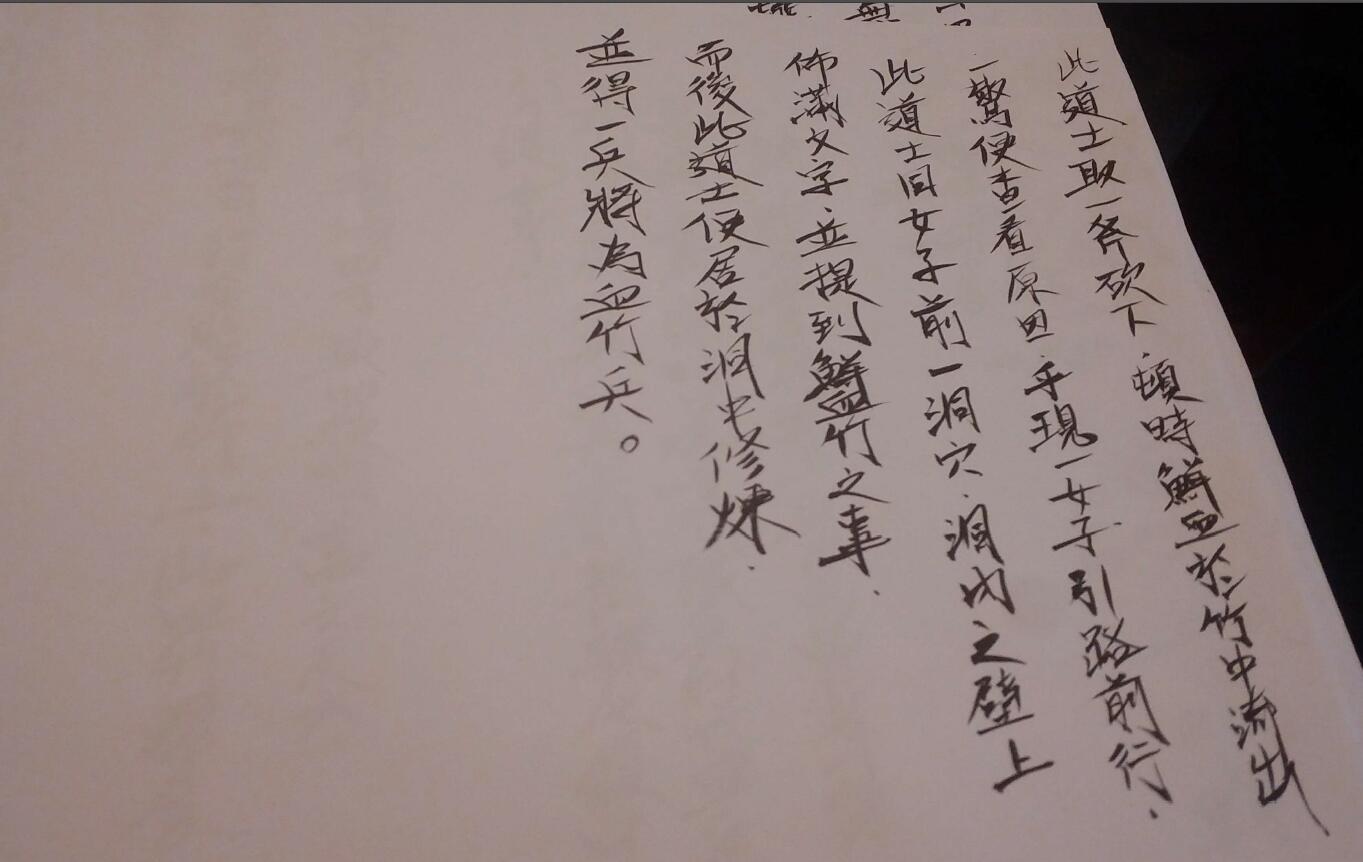 此道士取一斧砍下，頓時鮮血於竹中流出
一驚便查看原因，乎現一女子引路前行，
此道士因女子前一洞穴，洞內之壁上
佈滿文字，並提到鮮血竹之事，
而後此道士便居於洞中修煉，
並得一兵將為血竹兵。